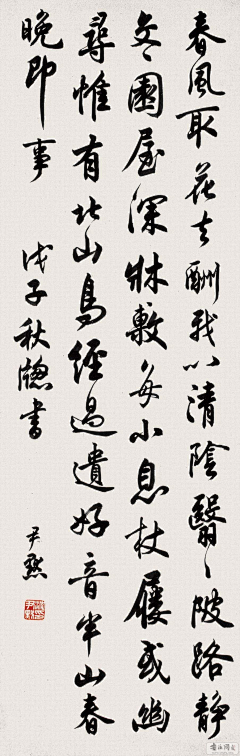 春風取花去酬我以清陰翳〻陂路靜
交〻園屋深牀敷每小息杖屨或幽
尋惟有北山鳥經過遺好音半山春
晚即事 戊子秋牕書
尹默